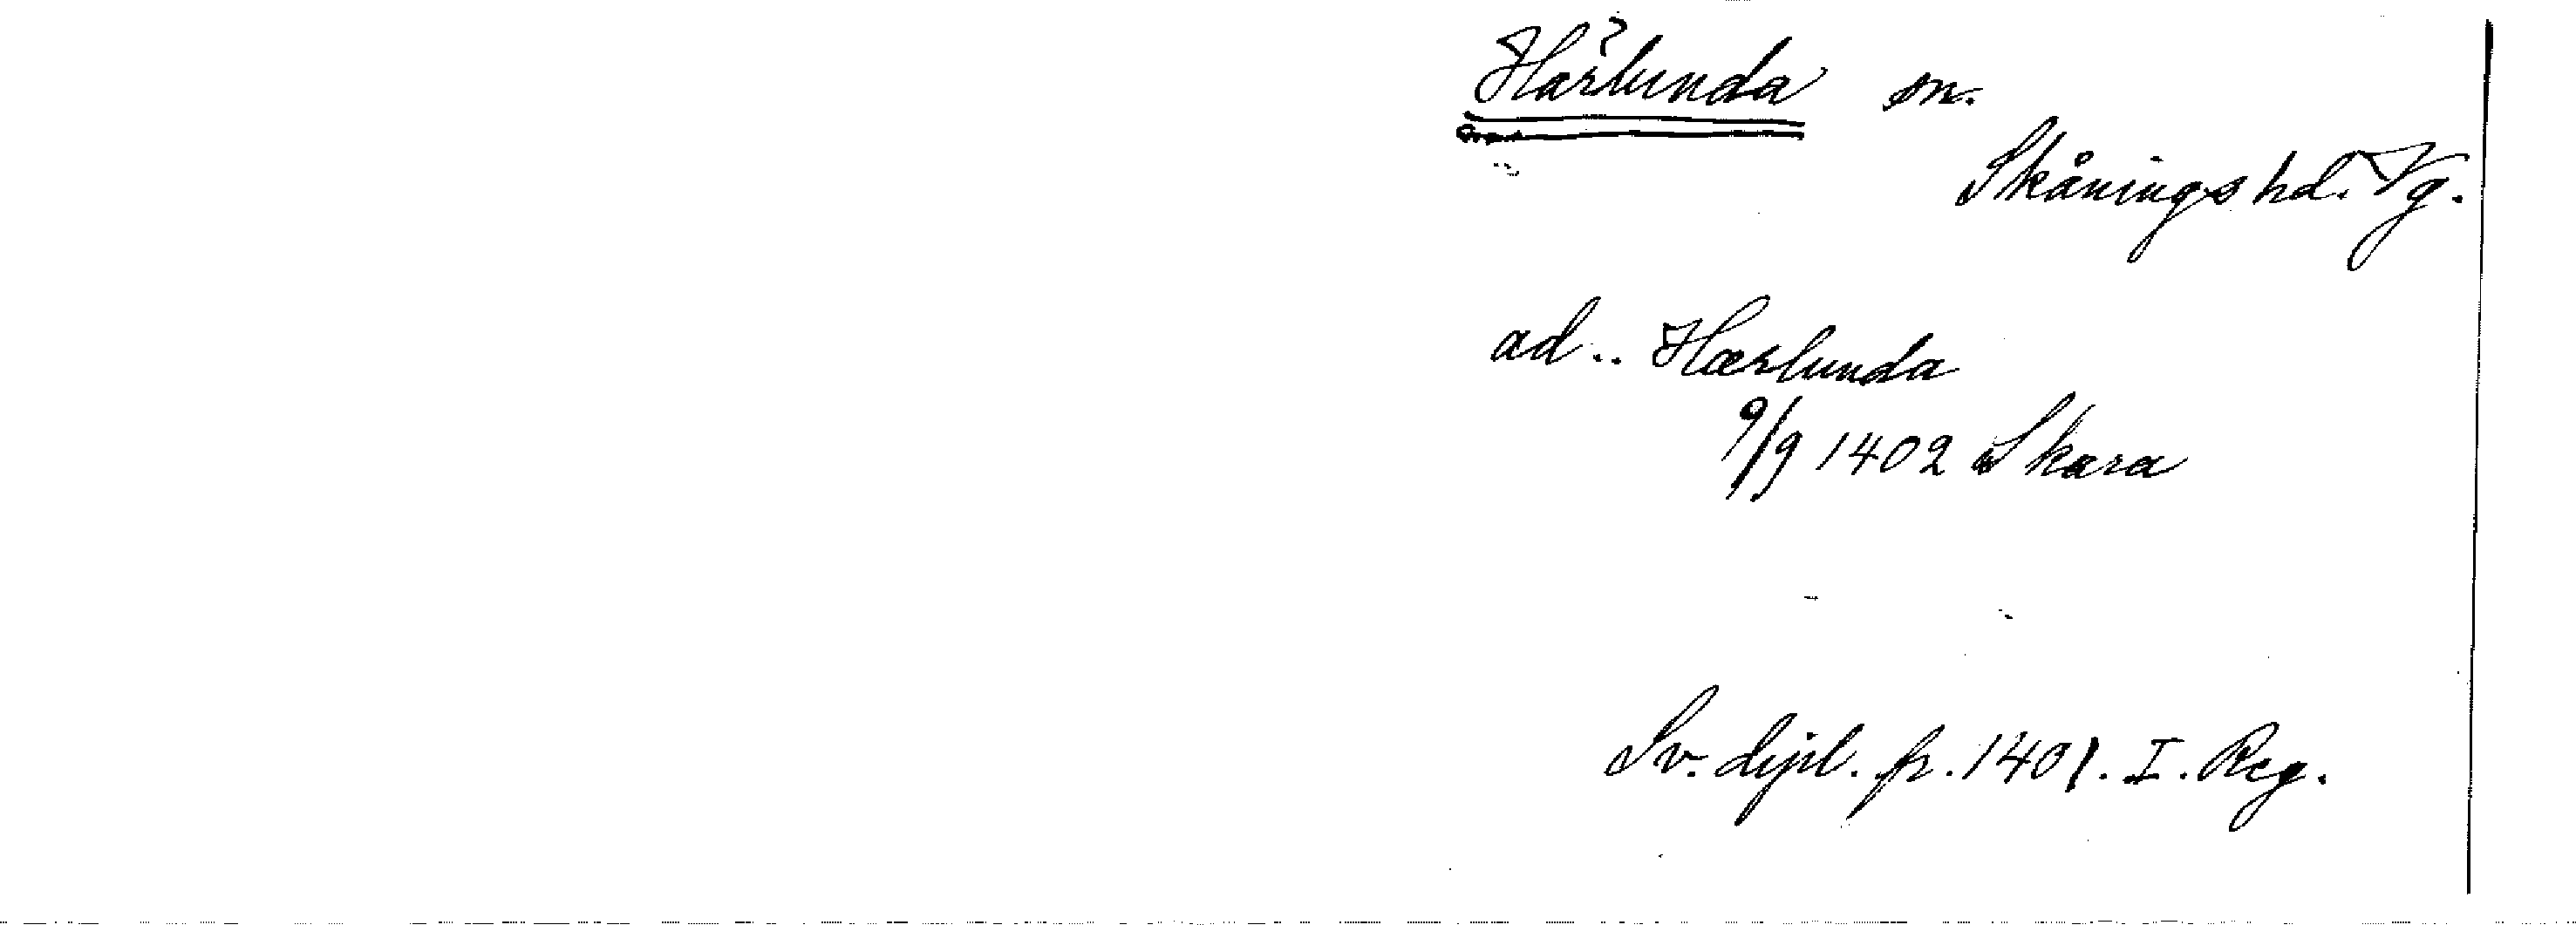 Härlunda sn.
Skånings hd. Vg.
ad .. Hærlunda
9/9 1402 Skara
Sv. dipl. fr. 1401. I. Reg.